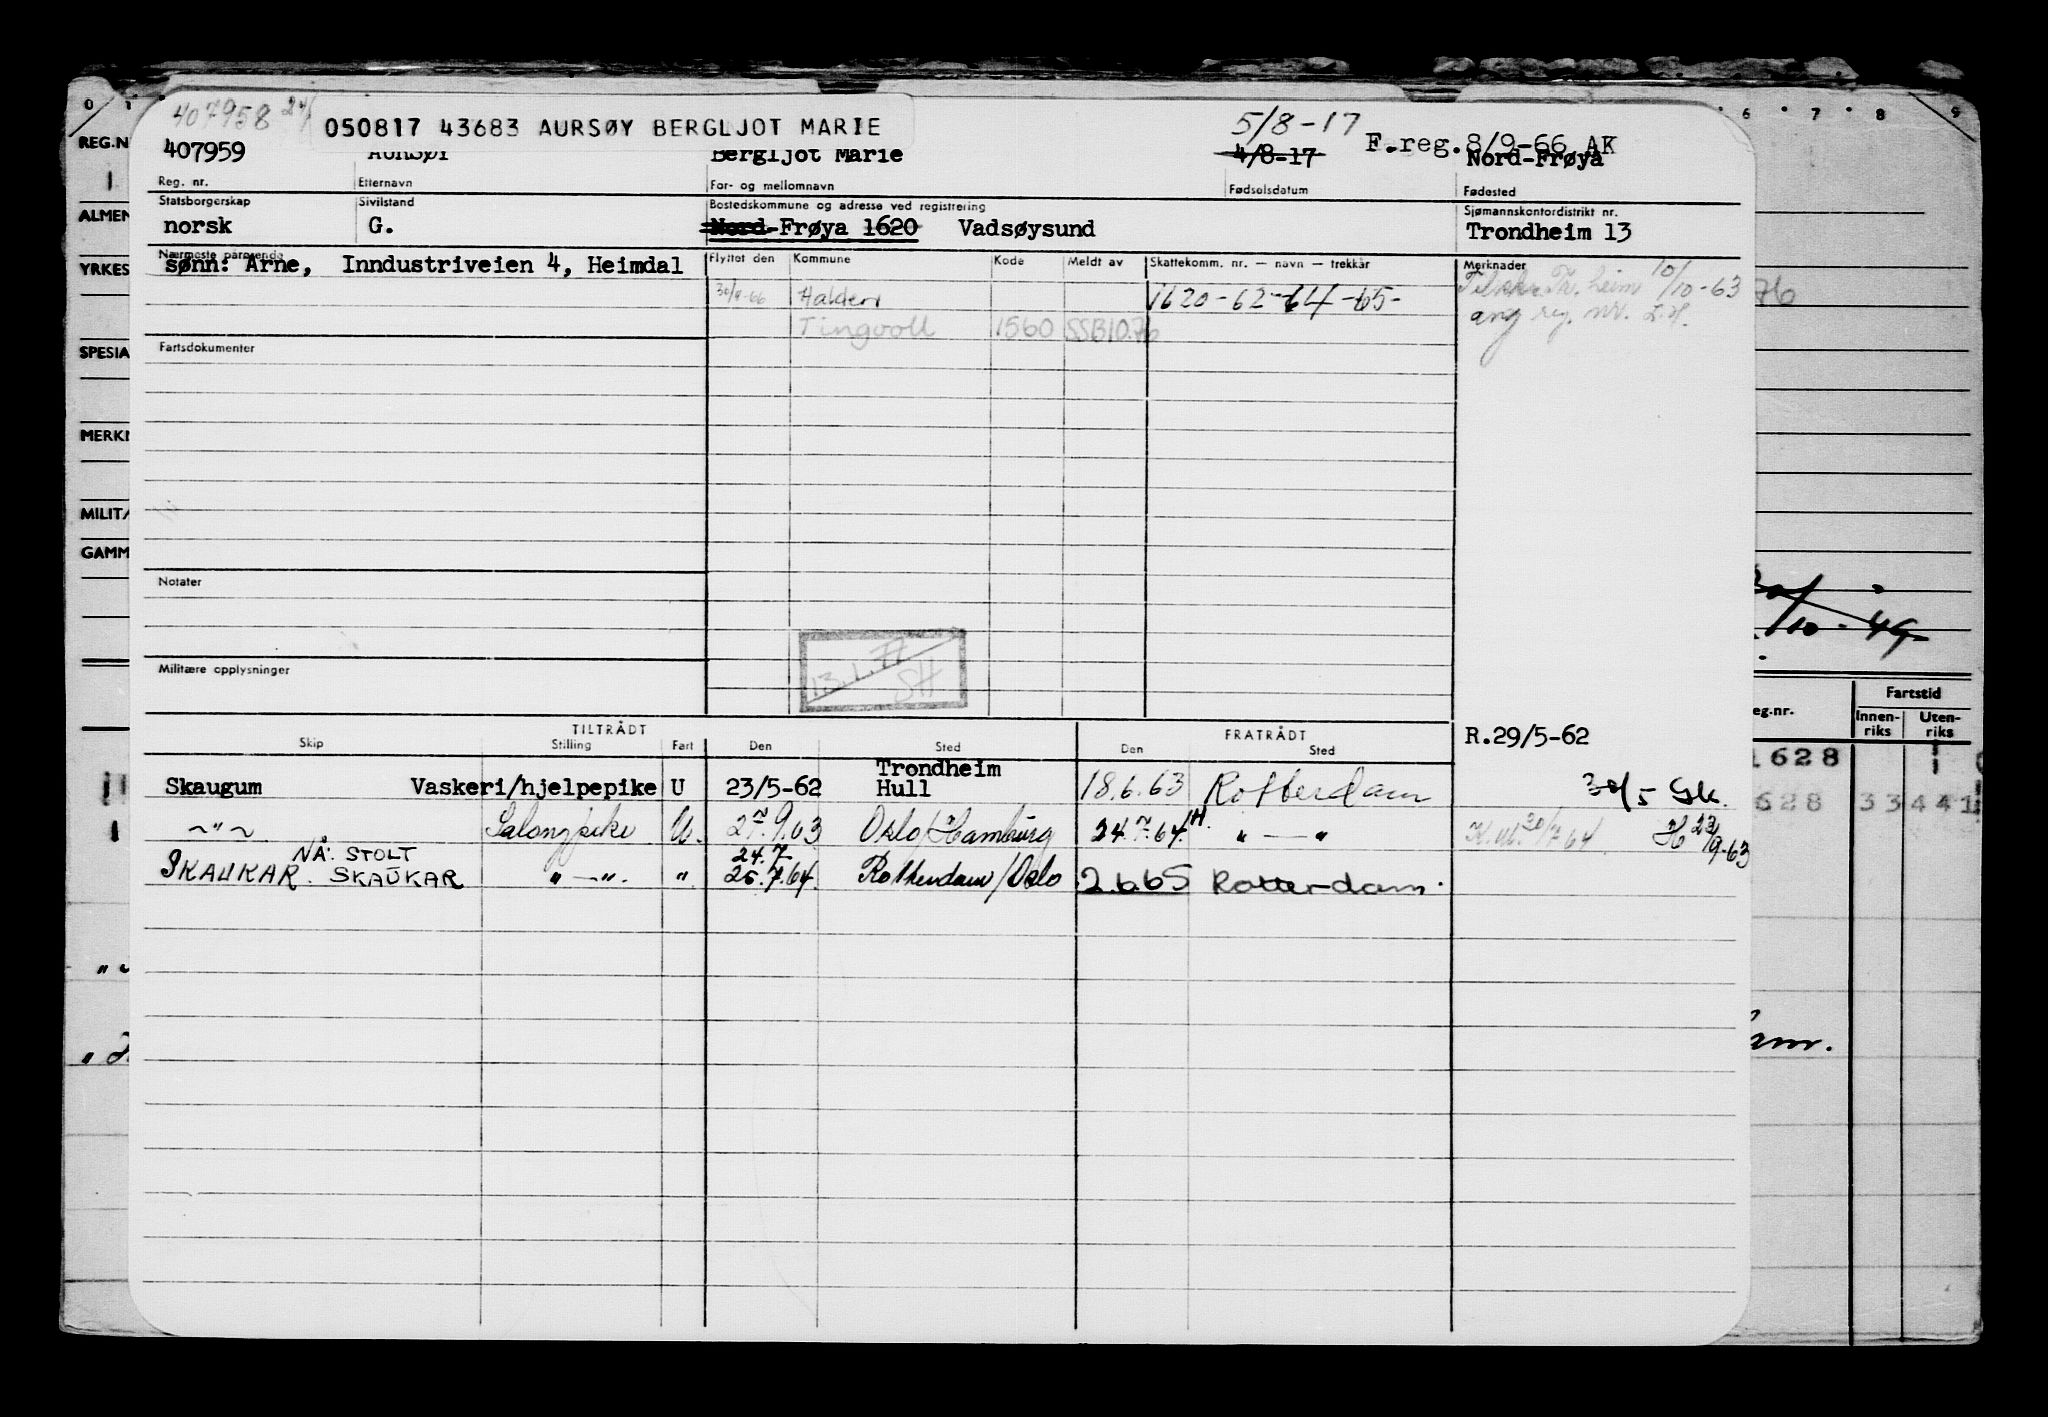 407958 24/
050817 43683 AURSØY BERGLJOT MARIE
5/8-17
F.reg.8/9-66 AK
407959 Bergljot Marie 4/8-17 Nord-Frøya
Reg. nr. Etternavn For- og mellomnavn Fødselsdatum Fødested
Statsborgerskap Sivilstand Bostedskommune og adresse ved registrering Sjømannskontordistrikt nr.
norsk G. Nord-Frøya 1620 Vadsøysund Trondheim 13
Nærmeste pårørende Flyttet den Kommune Kode Meldt av Skattekomm. nr. — navn — trekkår Merknader
sønn: Arne, Inndustriveien 4, Heimdal
30/9-66 Halden 1620-62-64-65- heim 10/10-63
Tingvoll 1560 SSB10.76 ang reg. nr.
Fartsdokumenter
Notater
Militære opplysninger
13.1.77
SH
TILTRÅDT FRATRÅDT R.29/5-62
Skip Stilling Fart Den Sted Den Sted
Trondheim
Skaugum Vaskeri/hjelpepike U 23/5-62 Hull 18.6.63 Rotterdam 30/5 Gk.
~"~ Salongpike U. 27.9.63 Oslo/Hamburg 24.7.64 " — " 30/7-64 H 23/9-63
NÅ: STOLT 24.7
SKAUKAR. SKAUKAR " — ". " 25.7.64. Rotterdam/Oslo 2.6.65 Rotterdam.
REG.N
ALMEN
YRKES
SPESIA
MERKN
MILITÆ
GAMM
0 1 6 7 8 9
76
/10-49
eg.nr. Fartstid
Innen-riks Uten-riks
1628 1
628 33441
am.